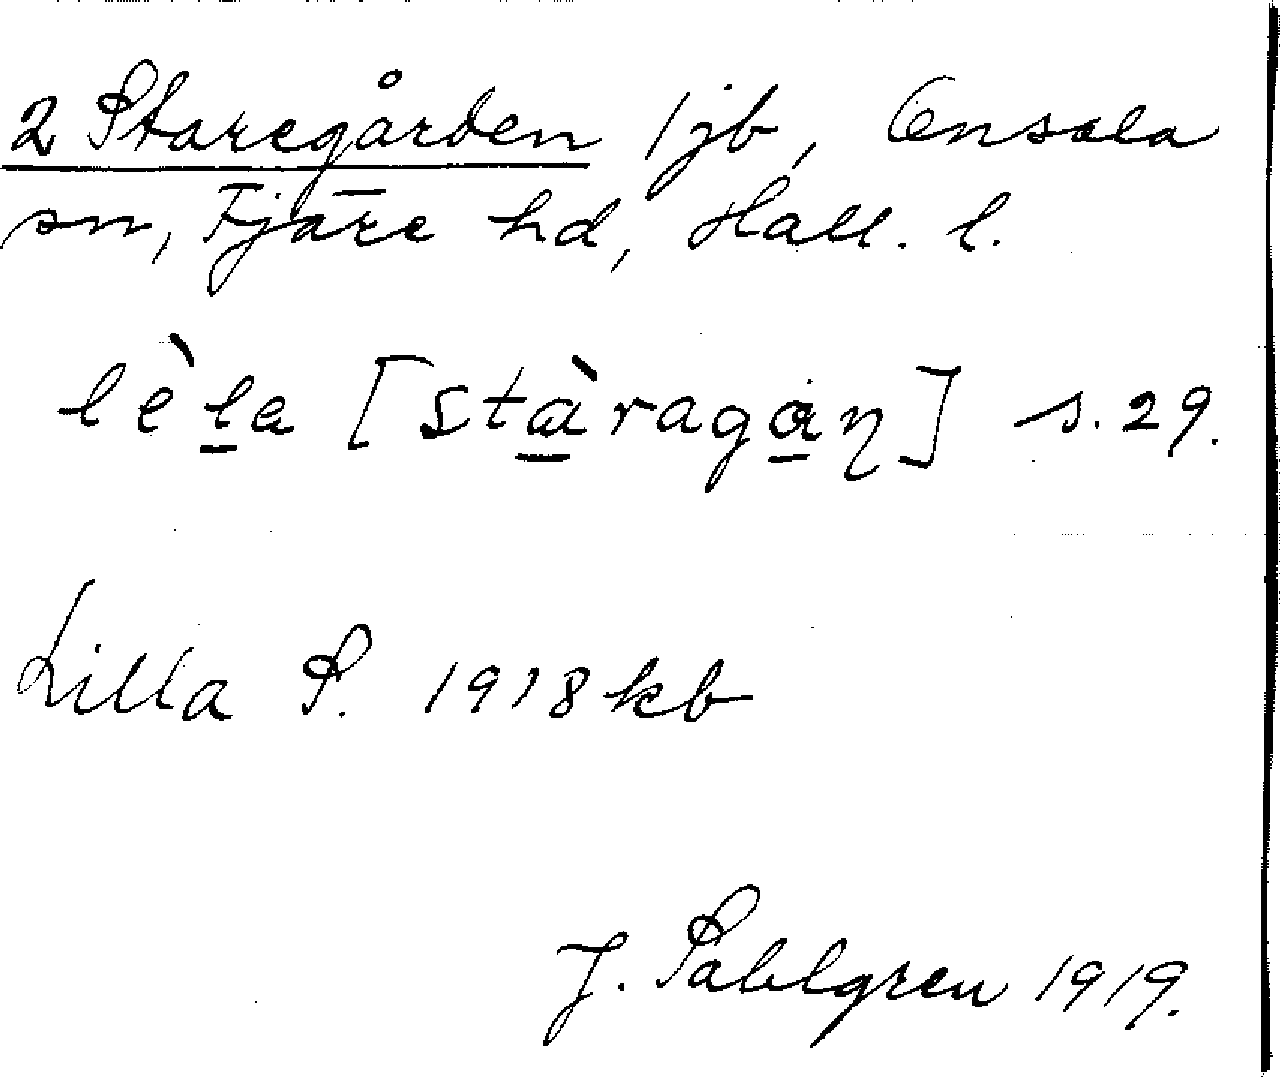 2 Staregården 1 jb, Onsala
sn, Fjäre hd, Hall. l.
lèl̠a [stà̠ragȧ̠ŋ] s. 29.
Lilla S. 1918 kb
J. Sahlgren 1919.